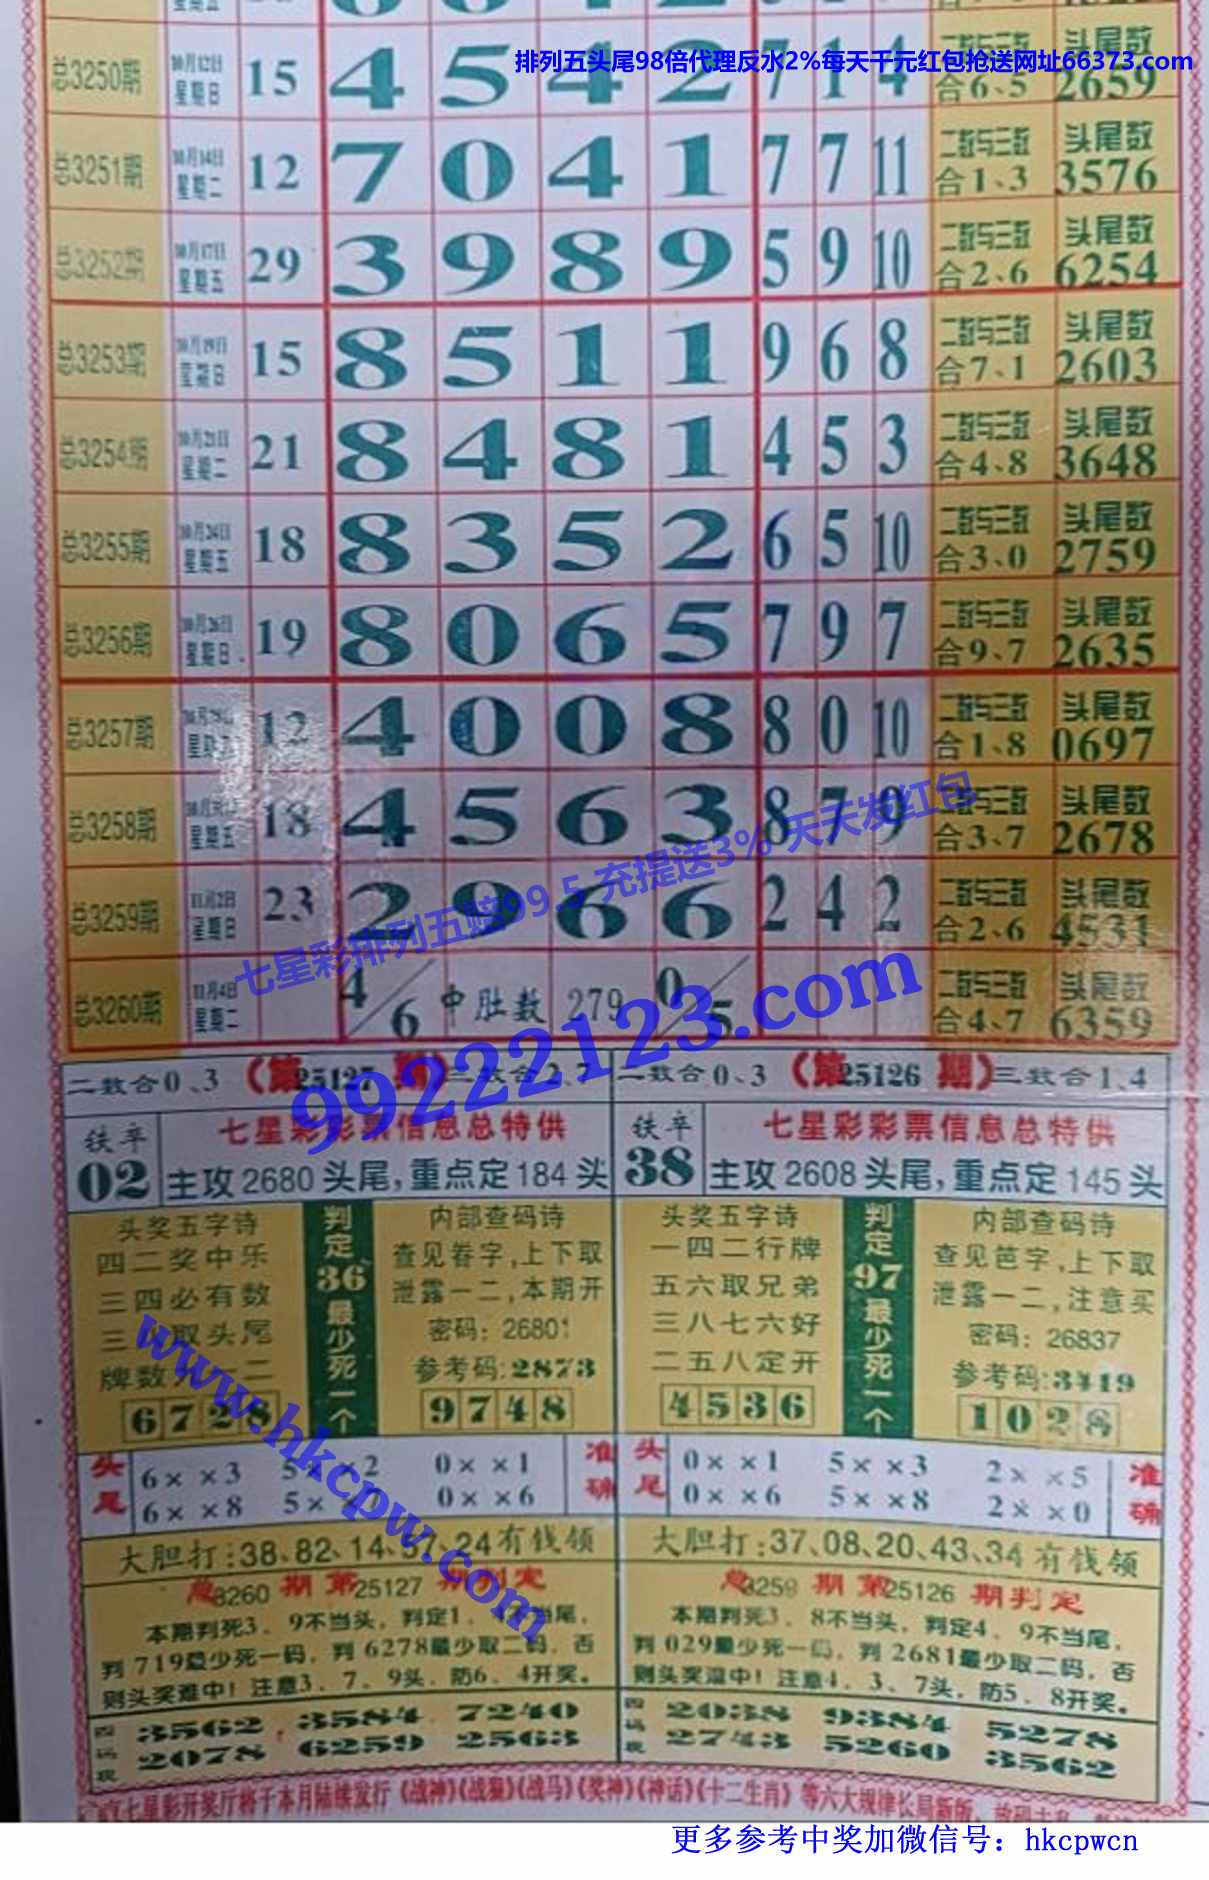 排列五头尾98倍代理反水2%每天千元红包抢送网址66373.com
总3250期 10月12日 星期日 15 4 5 4 2 7 1 4 合6、5 头尾数 2659
总3251期 10月14日 星期二 12 7 0 4 1 7 7 11 二数与三数 合1、3 头尾数 3576
总3252期 10月17日 星期五 29 3 9 8 9 5 9 10 二数与三数 合2、6 头尾数 6254
总3253期 10月19日 星期日 15 8 5 1 1 9 6 8 二数与三数 合7、1 头尾数 2603
总3254期 10月21日 星期二 21 8 4 8 1 4 5 3 二数与三数 合4、8 头尾数 3648
总3255期 10月24日 星期五 18 8 3 5 2 6 5 10 二数与三数 合3、0 头尾数 2759
总3256期 10月26日 星期日 19 8 0 6 5 7 9 7 二数与三数 合9、7 头尾数 2635
总3257期 12 4 0 0 8 8 0 10 二数与三数 合1、8 头尾数 0697
总3258期 星期五 18 4 5 6 3 8 7 9 二数与三数 合3、7 头尾数 2678
总3259期 11月2日 星期日 23 2 9 6 6 2 4 2 二数与三数 合2、6 头尾数 4531
总3260期 11月4日 星期二 4/6 中肚数 279 0/5 二数与三数 合4、7 头尾数 6359
七星彩排列五赔99.5 充提送3% 天天发红包
99222123.com
二数合0、3 (第25127期) 三数合2、7
铁卒 02
七星彩彩票信息总特供
主攻2680头尾,重点定184头
头奖五字诗
四二奖中乐
三四必有数
取头尾
牌数 一二
6728
判定36最少死一个
内部查码诗
查见眷字,上下取
泄露一二,本期开
密码: 26801
参考码:2873
9748
头尾 6××3 5××2 0××1 准确
6××8 0××6
大胆打:38、82、14、57、24有钱领
总3260期第25127期判定
本期判死3、9不当头,判定1、4不当尾,
判719最少死一码,判6278最少取二码,否
则头奖难中!注意3、7、9头,防6、4开奖。
四码现 3562 3584 7240
2078 6259 2563
二数合0、3 (第25126期) 三数合1、4
铁卒 38
七星彩彩票信息总特供
主攻2608头尾,重点定145头
头奖五字诗
一四二行牌
五六取兄弟
三八七六好
二五八定开
4536
判定97最少死一个
内部查码诗
查见芭字,上下取
泄露一二,注意买
密码: 26837
参考码:3419
1028
头尾 0××1 5××3 2××5 准确
0××6 5××8 2××0
大胆打:37、08、20、43、34有钱领
总3259期第25126期判定
本期判死3、8不当头,判定4、9不当尾,
判029最少死一码,判2681最少取二码,否
则头奖温中!注意4、3、7头,防5、8开奖。
四码现 2038 9384 5278
2743 5260 3562
www.hkcpw.com
七星彩开奖厅将于本月陆续发行《战神》《战狼》《战马》《奖神》《神话》《十二生肖》等六大规律长局新版,
更多参考中奖加微信号: hkcpwcn